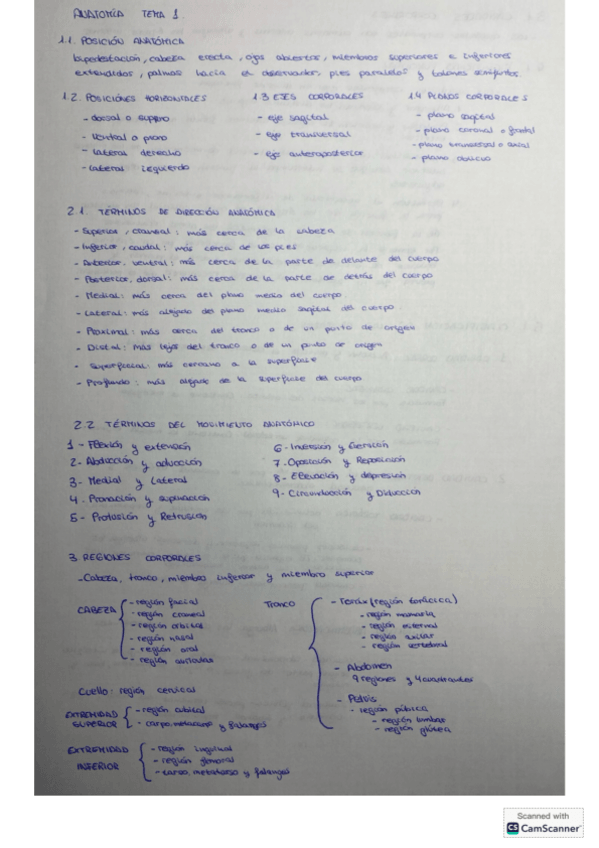 ANATOMÍA TEMA 1.
1.1. POSICIÓN ANATÓMICA
bipedestación, cabeza erecta, ojos abiertos, miembros superiores e inferiores
extendidos, palmas hacia el observador, pies paralelos y talones semijuntos.
1.2. POSICIONES HORIZONTALES
- dorsal o supino
- ventral o prono
- lateral derecho
- lateral izquierdo
1.3 EJES CORPORALES
- eje sagital
- eje transversal
- eje anteroposterior
1.4 PLANOS CORPORALES
- plano sagital
- plano coronal o frontal
- plano transversal o axial
- plano oblicuo
2.1. TÉRMINOS DE DIRECCIÓN ANATÓMICA
- Superior, craneal: más cerca de la cabeza
- Inferior, caudal: más cerca de los pies
- Anterior, ventral: más cerca de la parte de delante del cuerpo
- Posterior, dorsal: más cerca de la parte de detrás del cuerpo
- Medial: más cerca del plano medio del cuerpo.
- Lateral: más alejado del plano medio sagital del cuerpo
- Proximal: más cerca del tronco o de un punto de origen
- Distal: más lejos del tronco o de un punto de origen
- Superficial: más cercano a la superficie
- Profundo: más alejado de la superficie del cuerpo
2.2 TÉRMINOS DEL MOVIMIENTO ANATÓMICO
1 - Flexión y extensión
2 - Abducción y aducción
3 - Medial y Lateral
4 - Pronación y supinación
5 - Protusión y Retrusión
6 - Inversión y Eversión
7 - Oposición y Reposición
8 - Elevación y depresión
9 - Circunducción y Diducción
3. REGIONES CORPORALES
- Cabeza, tronco, miembro inferior y miembro superior
CABEZA
- región facial
- región craneal
- región orbital
- región nasal
- región oral
- región auricular
Cuello: región cervical
EXTREMIDAD SUPERIOR
- región cubital
- carpo, metacarpo y falanges
EXTREMIDAD INFERIOR
- región inguinal
- región femoral
- tarso, metatarso y falanges
TRONCO
- Tórax (región torácica)
- región mamaria
- región esternal
- región axilar
- región vertebral
- Abdomen
9 regiones y 4 cuadrantes
- Pelvis
- región púbica
- región lumbar
- región glútea
Scanned with
CS CamScanner